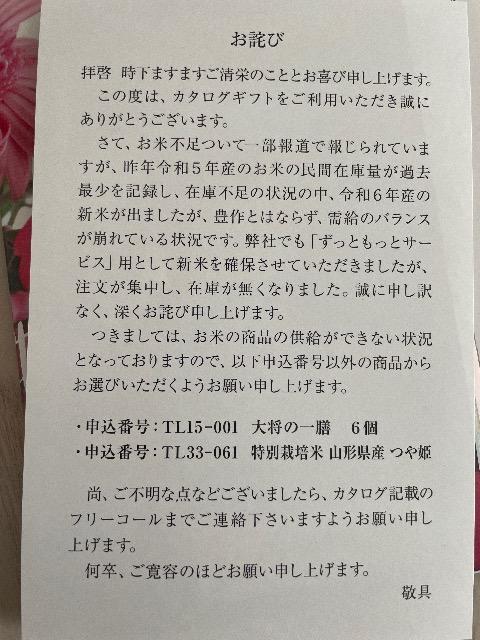 お詫び
拝啓 時下ますますご清栄のこととお喜び申し上げます。
この度は、カタログギフトをご利用いただき誠に
ありがとうございます。
さて、お米不足ついて一部報道で報じられていま
すが、昨年令和５年産のお米の民間在庫量が過去
最少を記録し、在庫不足の状況の中、令和６年産の
新米が出ましたが、豊作とはならず、需給のバランス
が崩れている状況です。弊社でも「ずっともっとサー
ビス」用として新米を確保させていただきましたが、
注文が集中し、在庫が無くなりました。誠に申し訳
なく、深くお詫び申し上げます。
つきましては、お米の商品の供給ができない状況
となっておりますので、以下申込番号以外の商品から
お選びいただくようお願い申し上げます。
・申込番号：TL15-001 大将の一膳 ６個
・申込番号：TL33-061 特別栽培米 山形県産 つや姫
尚、ご不明な点などございましたら、カタログ記載の
フリーコールまでご連絡下さいますようお願い申し
上げます。
何卒、ご寛容のほどお願い申し上げます。
敬具